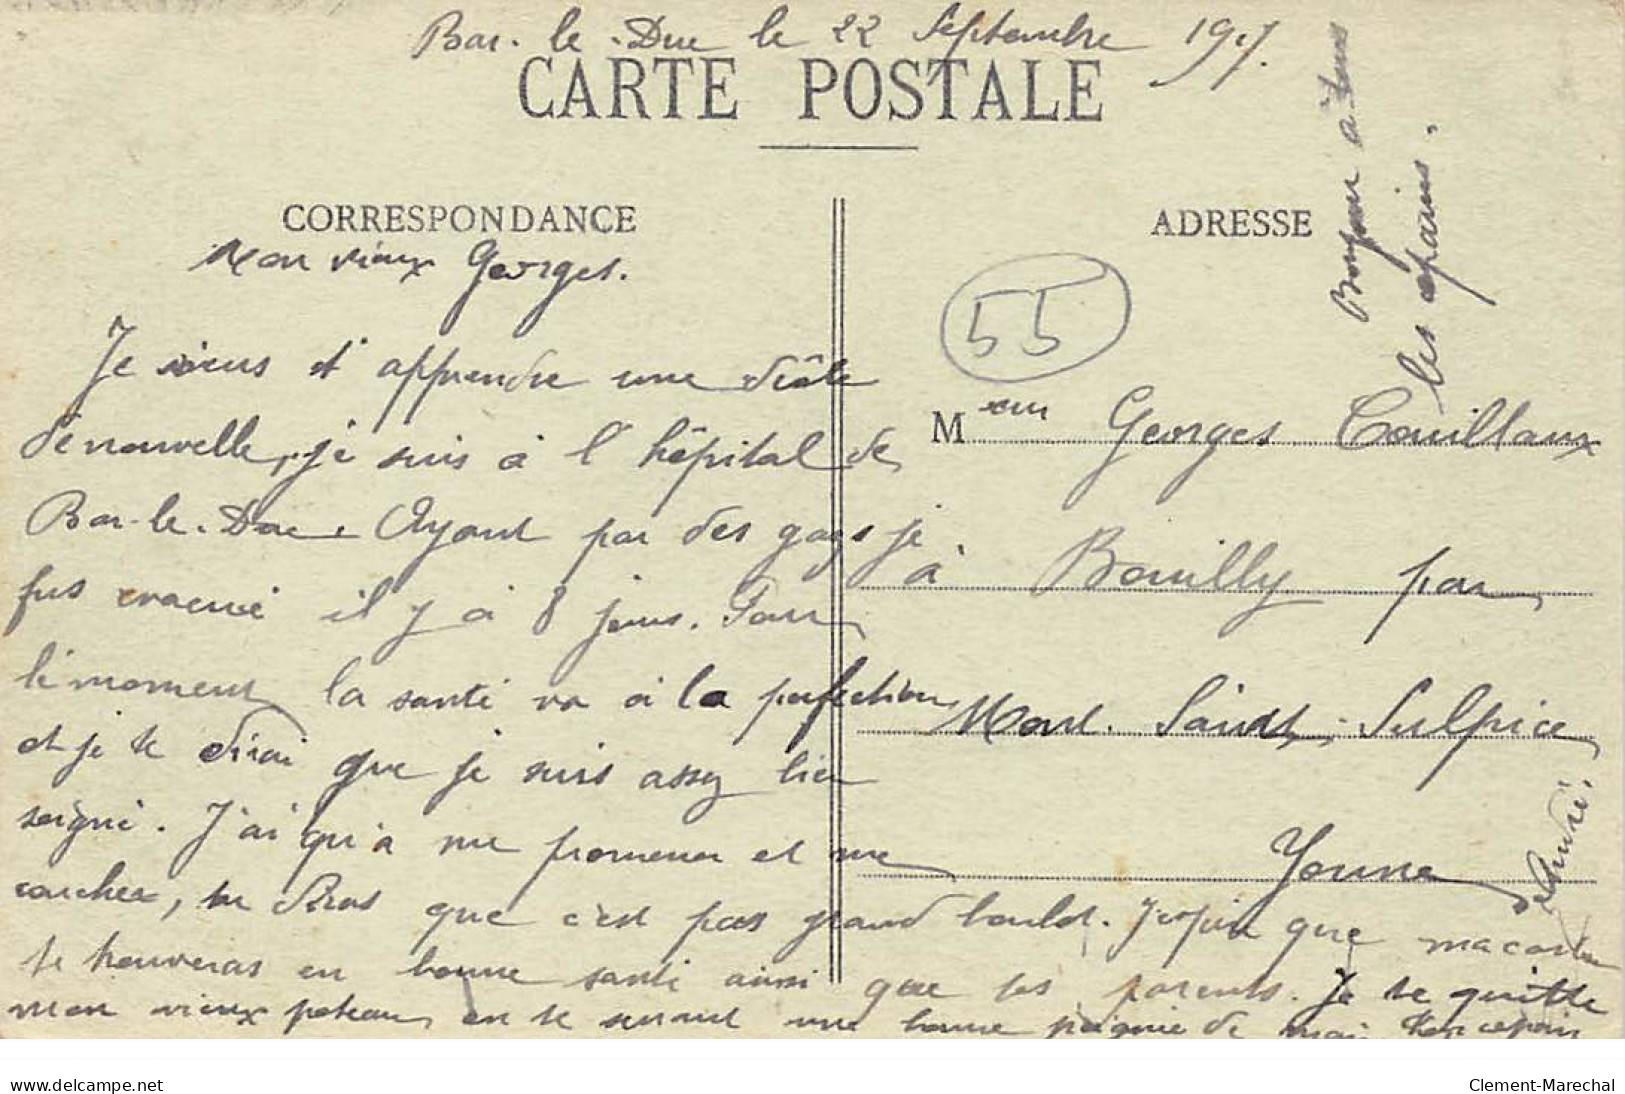 Bar-le-Duc le 22 Septembre 1917.
CARTE POSTALE
CORRESPONDANCE
ADRESSE
Mon vieux Georges.
Je viens d'apprendre une drôle
de nouvelle, je suis à l'hôpital de
Bar-le-Duc. Ayant par des gazs je
fus évacué il y a 8 jours. Pour
le moment la santé va à la perfection
et je te dirai que je suis assez bien
soigné. J'ai qu'a me promener et me
coucher, tu diras que c'est pas grand boulot. J'espère que ma carte
te trouveras en bonne santé ainsi que tes parents. Je te quitte
mon vieux poteau en te serrant une bonne poignée de main. Ton copain
André.
55
M eur Georges Couillaux
à Bouilly par
Mont-Saint-Sulpice
Yonne
Bonjour à tous
les copains.
delcampe.net
Clement-Marechal